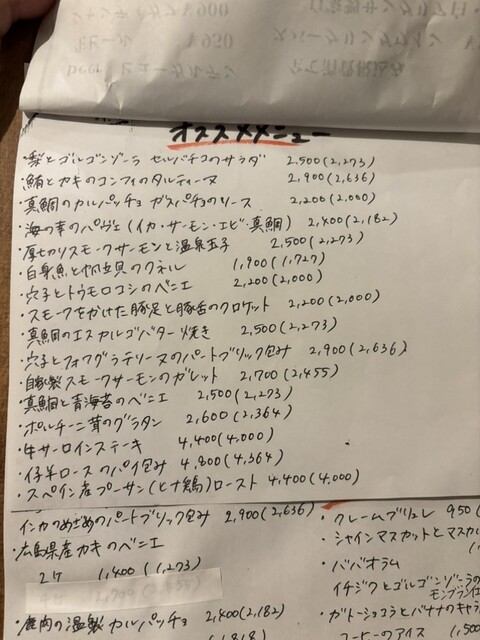 オススメメニュー
・梨とゴルゴンゾーラ セルバチコのサラダ 2,500(2,273)
・鮪とカキのコンフィのタルティーヌ 2,900(2,636)
・真鯛のカルパッチョ ガスパチョのソース 2,200(2,000)
・海の幸のパヴェ(イカ・サーモン・エビ・真鯛) 2,400(2,182)
・厚切りスモークサーモンと温泉玉子 2,500(2,273)
・白身魚と帆立貝のクネル 1,900(1,727)
・穴子とトウモロコシのベニエ 2,200(2,000)
・スモークをかけた豚足と豚舌のクロケット 2,200(2,000)
・真鯛のエスカルゴバター焼き 2,500(2,273)
・穴子とフォアグラテリーヌのパートブリック包み 2,900(2,636)
・自家製スモークサーモンのガレット 2,700(2,455)
・真鯛と青海苔のベニエ 2,500(2,273)
・ポルチーニ茸のグラタン 2,600(2,364)
・牛サーロインステーキ 4,400(4,000)
・仔羊ロースのパイ包み 4,800(4,364)
・スペイン産プーサン(ヒナ鶏)ロースト 4,400(4,000)
インカのめざめのパートブリック包み 2,900(2,636)
・広島県産カキのベニエ
2ケ 1,400(1,273)
・鹿肉の温製カルパッチョ 2,400(2,182)
・クレームブリュレ 950
・シャインマスカットとマスカル
・ババオラム
イチジクとゴルゴンゾーラの
モンブラン仕
・ガトーショコラとバナナのキャラ
コーヒーのアイス 1,500